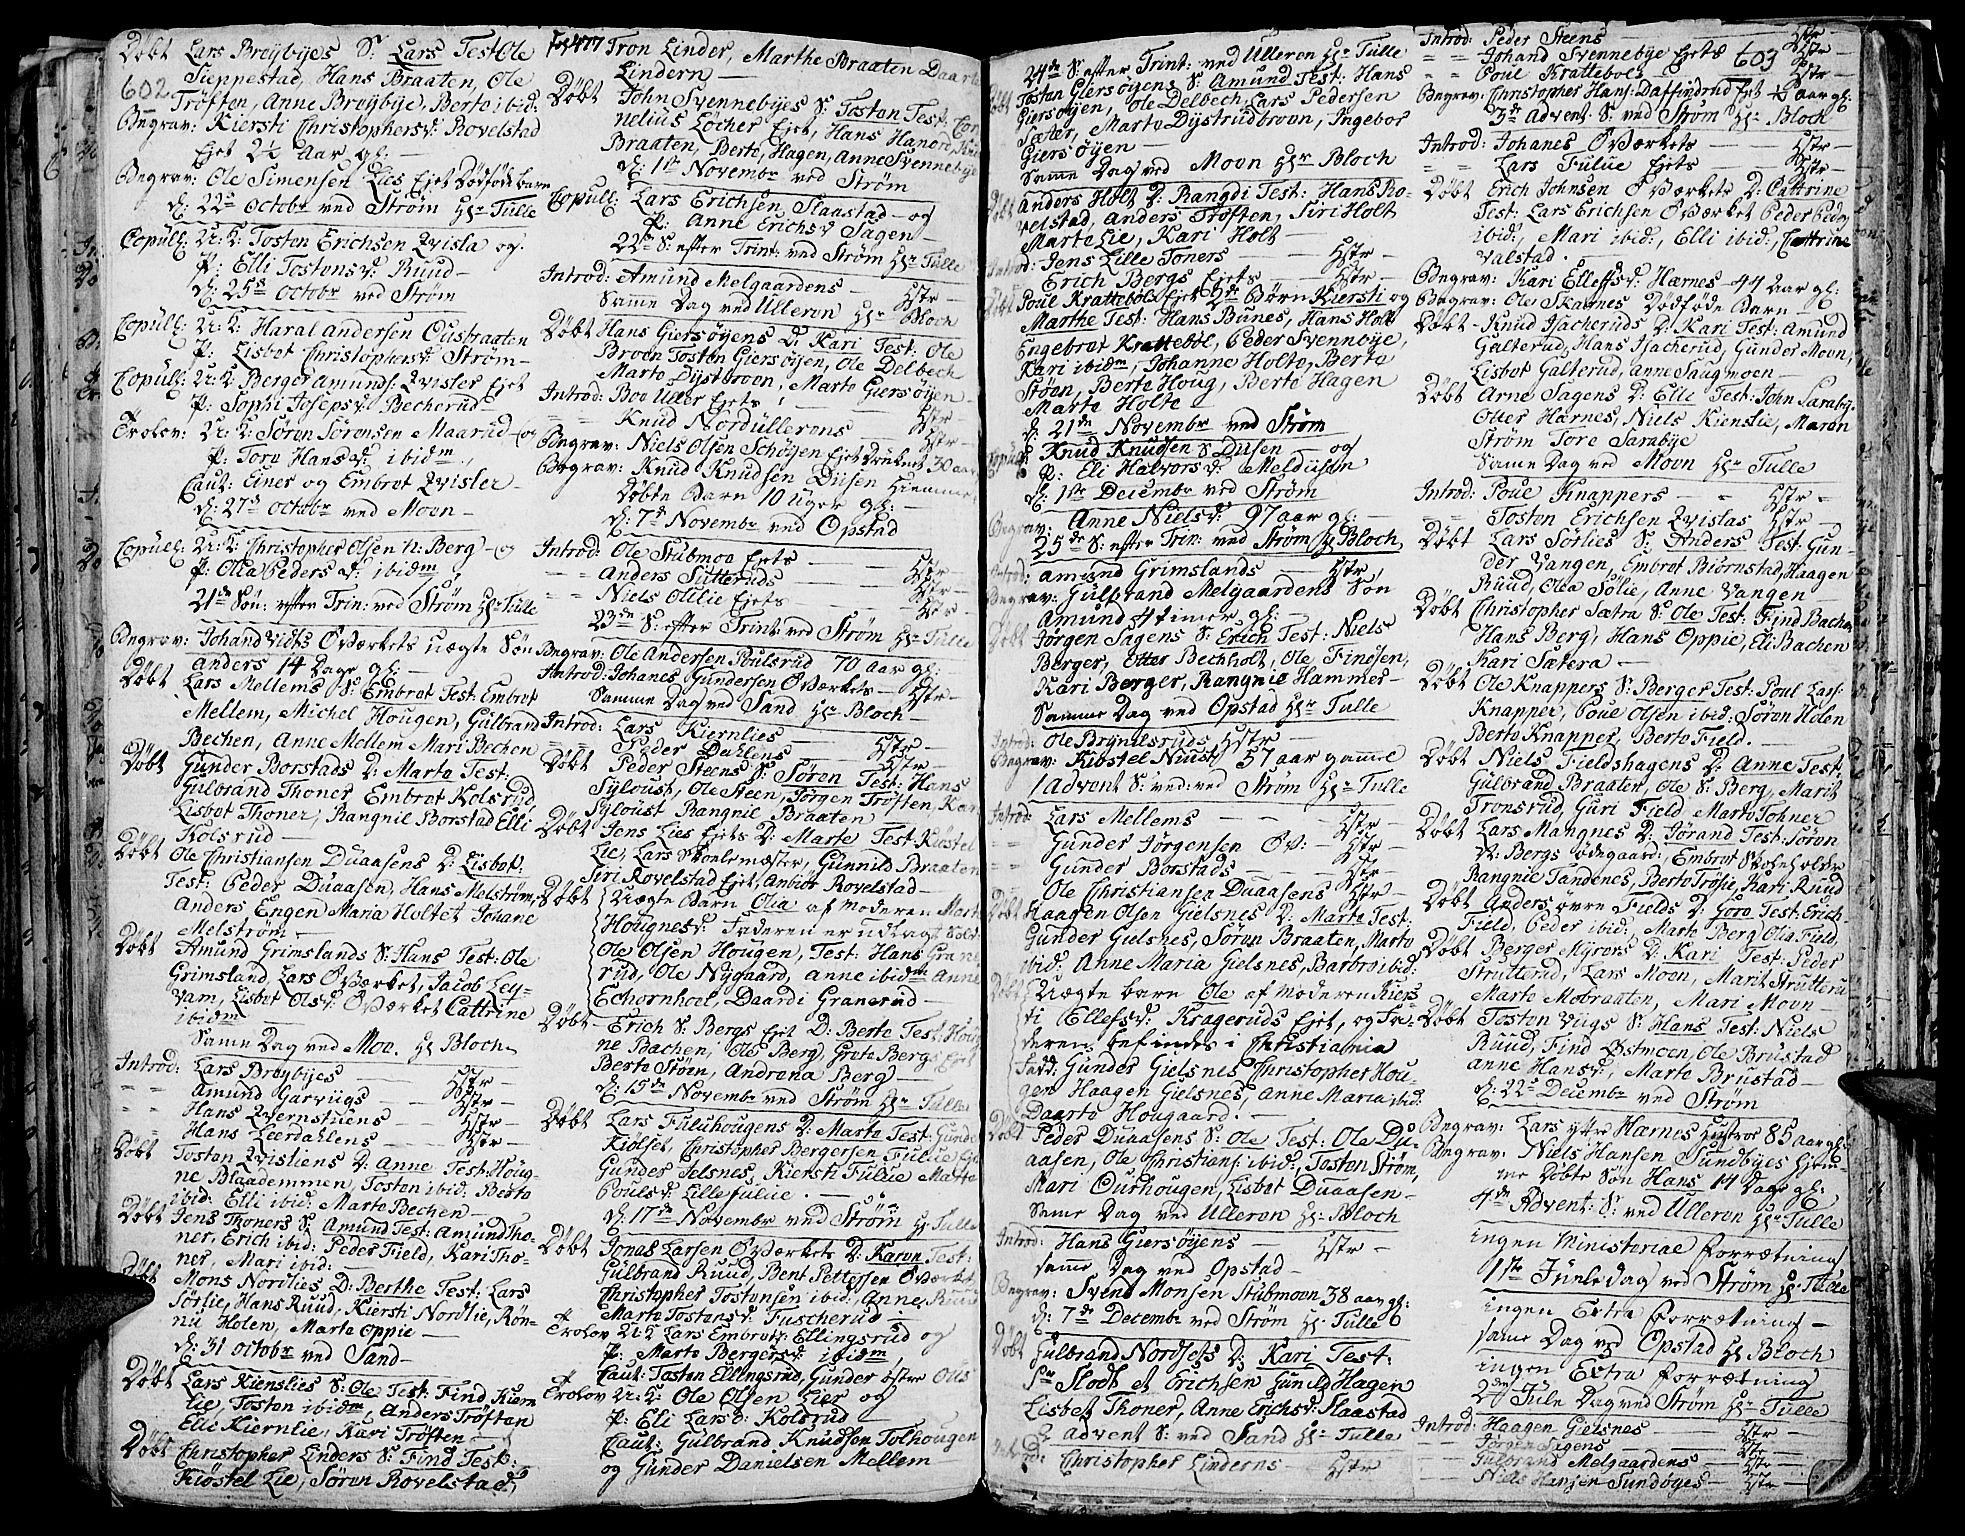 Døbt Lars Brøybyes S: Lars Test Ole
602 Sieppestad, Hans Braaten, Ole
Trøften, Anne Brøybye, Berte ibid:
Begrav: Kiersti Christophersd: Rovelstad
Ejet 2½ Aar gl:
Begrav: Ole Simensen Lies Ejet Dødføde barn
d: 22de Octobr ved Strøm Hr Tulle
Copull: U: K: Tosten Erichsen Qvisla og
P: Elli Tostensd: Ruud
d: 25de Octobr ved Strøm
Copull: U: K: Haral Andersen Oustraaten
P: Lisbet Christophersd: Strøm
Copull: U: K: Berger Amunds: Qvisler Ejet
P: Sophi Josepsd: Becherud
Trolov: U: K: Søren Sørensen Maarud og
P: Tore Hansd: ibidm
Caut: Einer og Embret Qvisler
d: 27de Octobr ved Moen
Copull: U: K: Christopher Olsen n: Berg og
P: Olia Peders d: ibidm
21de Søn: efter Trin: ved Strøm Hr Tulle
Begrav: Johan Vidts Ø Værkets uægte Søn
Anders 14 Dage gl:
Døbt Lars Mellems S: Embret Test: Embret
Mellem, Michel Hougen, Gulbrand
Bechen, Anne Mellem Mari Bechen
Døbt Gunder Borstads D: Marte Test:
Gulbrand Thoner Embret Kolsrud
Lisbet Thoner, Rangnil Borstad Elli
Kolsrud
Døbt Ole Christiansen Duaasens D: Lisbet
Test: Peder Duaasen, Hans Melstrøm,
Anders Engen Maria Holtet Johane
Melstrøm
Døbt Amund Grimslands S: Hans Test: Ole
Grimsland, Lars Ø Værket, Jacob Ley-
ram, Lisbet Olsd: Ø Værket Cattrine
ibidm
Same Dag ved Moe. Hr Bloch
Introd: Lars Brøybyes Hstr
Amund Garvugs Hstr
Hans Qvernstuens Hstr
Hans Leerdahlens Hstr
Døbt Tosten Qvistiens D: Anne Test: Houg-
ne, Blaademmen, Tosten ibid: Berte
ibid: Elli ibid: Marte Bechen
Døbt Jens Thoners S: Amund Test: Amund Tho-
ner, Erich ibid: Peder Field, Kari Tho-
ner, Mari ibid:
Døbt Mons Nordlies D: Berthe Test: Lars
Sørlie, Hans Ruud, Kiersti Nordlie, Røn-
nu Holen, Marte Oppie
d: 31 Octobr ved Sand
Døbt Lars Kienslies S: Ole Test: Find Kiern
lie, Tosten ibidm, Anders Trøften
Elli Kiernlie, Kari Trøften
Døbt Christopher Linders S: Find Test:
Kiøstel Lie, Søren Rovelstad,
Tron Linder, Marthe Braaten Daarte
Lindern
Døbt John Svennebyes S: Tosten Test: Cor
nelius Løcher Ejet, Hans Hanerd,
Braaten, Berte, Hagen, Anne Svennebye
d: 1ste Novembr ved Strøm
Copull: Lars Erichsen Slaastad og
P: Anne Erichsd Sagen
22de S: efter Trin: ved Strøm Hr Tulle
Introd: Amund Melgaardens Hstr
Samme Dag ved Ulleren Hr Bloch
Døbt Hans Giersøyens D: Kari Test: Ole
Broen Tosten Giersøyen, Ole Delbech
Marte Dystbroen, Marte Giersøyen
Introd: Boe Uller Ejets Hstr
Knud Nordullerens Hstr
Begrav: Niels Olsen Schøyen Ejet Druknet 30 aar
Begrav: Knud Knudsen Dusen Hiemme
Døbte Barn 10 Uger gl:
d: 7de Novembr ved Opstad
Introd: Ole Stubmoe Ejets Hstr
Anders Sutteruds Hstr
Niels Olilie Ejets Hstr
23de S: efter Trint: ved Strøm Hr Tulle
Begrav: Ole Andersen Poulsrud 70 aar gl:
Introd: Johanes Gundersen Ø Værkets Hstr
Samme Dag ved Sand Hr Bloch
Introd: Lars Kiernlies Hstr
Peder Dahlens Hstr
Døbt Peder Steens S: Søren Test: Hans
Syloust, Ole Steen, Jørgen Trøften, Kari
Syloust Rangnil Braaten
Døbt Jens Lies Ejets D: Marte Test: Kiøstel
Lie, Lars Skolemester, Gunnild Braaten
Siri Rovelstad Ejet, Anbiør Rovelstad
Døbt Uægte Barn Olia af Moderen Marte
Hougnesd: Faderen er udlagt Sold:
Ole Olsen Hougen, Test: Hans Grane
rud, Ole Nygaard, Anne ibidm Anne
Echornhoel, Daardi Granerud
Døbt Erich S: Bergs Ejet D: Berte Test: Houg
ne Bachen, Ole Berg, Grete Berg Ejet
Berte Støen, Andrena Berg
d: 15de Novembr ved Strøm Hr Tulle
Døbt Lars Fuluhougens D: Marte Test: Gunder
Kiølset, Christopher Bergersen Fulue
Gunder Jelsnes, Kiersti Fulue Marte
Poulsd: Lillefulue.
d: 17de Novembr ved Strøm Hr Tulle
Døbt Jonas Larsen Ø Værkets D: Karen Test:
Gulbrand Ruud, Bent Pettersen Ø Værket,
Christopher Tostensen ibid: Anne Ruud
Marte Tostensd: Fuscherud
Trolov U: K Lars Embretss: Ellingsrud og
P: Marte Bergersd: ibidm
Caut: Tosten Ellingsrud, Gunder Øster Ous
Trolov U: K: Ole Olsen Lier og
P: Eli Larsd: Kolsrud
Caut: Gulbrand Knudsen Tolhougen
og Gunder Danielsen Mellem
24de S: efter Trint: ved Ulleren Hr Tulle
Tosten Giersøyens S: Amund Test: Hans
Giersøyen, Ole Delbech, Lars Pedersen
Sæter, Marte Dystrudbroen, Ingebor
Giersøyen
Samme Dag ved Moen Hr Bloch
Døbt Anders Holt D: Rangdi Test: Hans Ro-
velstad, Anders Trøften, Siri Holt
Marte Lie, Kari Holt
Introd: Jens Lille Toners Hstr
Erich Bergs Ejets Hstr
Døbt Poul Krattebøl Ejet 2de Børn Kiersti og
Marthe Test: Hans Bunes, Hans Holt
Engebret Krattebøl, Peder Svennbye,
Kari ibidm, Johanne Holte, Berte
Støen, Berte Houg, Berte Hagen
Marte Holte
d: 21de Novembr ved Strøm
Copul: Knud Knudsen S Dusen og
P: Eli Halvorsd: Meldiisen
d: 1ste Decembr ved Strøm
Begrav: Anne Nielsd: 97 aar gl:
25de S: efter Trin: ved Strøm Hr Bloch
Introd: Amund Grimslands Hstr
Begrav: Gulbrand Melgaardens Søn
Amund 4 timer gl:
Døbt Jørgen Sagens S: Erich Test: Niels
Berger, Otter Bechholt, Ole Finesen,
Kari Berger, Rangnie Hammer
Samme Dag ved Opstad Hr Tulle
Introd: Ole Bryndlsruds Hstr
Begrav: Kibstel Nuust 57 aar gammel
1 Advent S: ved: ved Strøm Hr Tulle
Introd: Lars Mellems Hstr
Gunder Jørgensen ØV: Hstr
Gunder Borstads Hstr
Ole Christiansen Duaasens Hstr
Døbt Haagen Olsen Gielsnes D: Marte Test:
Gunder Gielsnes, Søren Braaten, Marte
ibid: Anne Maria Gielsnes, Barbro ibid:
Døbt Uægte barn Ole af Moderen Kiers
ti Ellefsd: Krageruds Ejet, og Fa-
deren befindes i Christiania
Fadd: Gunder Gielsnes Christopher Hou-
gen Haagen Gielsnes, Anne Maria ibid:
Daarte Hougaard.
Døbt Peder Duaasens S: Ole Test: Ole Du-
aasen, Ole Christians: ibid: Tosten Strøm,
Mari Ourhougen, Lisbet Duaasen
Same Dag ved Ulleren Hr: Bloch
Introd: Hans Giersøyens Hstr
same Dag ved Opstad
Begrav: Svend Monsen Stubmoen 38 aar gl:
d: 7de Decembr ved Strøm Hr: Tulle
Døbt Gulbrand Nordsets D: Kari Test:
Sr Slodt et Erichsen Gunild Hagen
Lisbet Thoner, Anne Erichsd: Slaastad
2 Advent S: ved Sand Hr Tulle
Introd: Christopher Linderns Hstr
Introd: Peder Steens Hstr
Johand Svennebye Ejets Hstr 603
Poul Krattebøls Hstr
Begrav: Christopher Hans: Daffindrud Ejet ½ aar gl:
3de Advent S: ved Strøm Hr Bloch
Introd: Johanes Ø Værkets Hstr
Lars Fulue Ejets Hstr
Døbt Erich Johnsen Ø Værkets D: Cattrine
Test: Lars Erichsen Ø Værket Peder Peder
ibid:, Mari ibid:, Elli ibid:, Cattrine
Valstad.
Begrav: Kari Elleffsd: Hærnes 44 aar gl:
Begrav: Ole Skarnes Dødføde Barn
Døbt Knud Isacheruds D: Kari Test: Amund
Galterud, Hans Isacherud, Gunder Moen,
Lisbet Galterud, Anne Saugmoen
Døbt Arne Sagens D: Elli Test: John Sarabye
Otter Harnes, Niels Kienslie, Maren
Strøm Tore Sarabye
Same Dag ved Moen Hr Tulle
Introd: Poul Knappers Hstr
Tosten Erichsen Qvislas Hstr
Døbt Lars Sorlies S: Anders Test: Gun-
der Vangen, Embret Biørnstad, Haagen
Ruud, Olea Sølie, Anne Vangen
Døbt Christopher Sætra S: Ole Test: Find Bachen
Hans Berg, Hans Oppie, Eli Bachen
Kari Sætera
Døbt Ole Knappers S: Berger Test: Poul Lars:
Knapper, Poul Olsen ibid: Søren Holen
Berte Knapper, Berte Field.
Døbt Niels Fieldshagens D: Anne Test:
Gulbrand Braaten, Ole S: Berg, Marit
Tronsrud, Guri Field Marte Tohner
Døbt Lars Mangnes D: Jørand Test: Søren
N: Bergs Ødegaard: Embret Skoleholder
Rangnie Tandenes, Berte Trøsie, Kari Ruud
Døbt Anders Øvre Fields D: Goro Test: Erich
Field, Peder ibid: Marte Berg Olia Field,
Døbt Berger Myrers D: Kari Test: Peder
Strutterud, Lars Moen, Marit Strutteru
Marte Mobraaten, Mari Moen
Døbt Tosten Vugs S: Hans Test: Niels
Ruud, Find Østmoen, Ole Brustad
Anne Hansd:, Marte Brustad
d: 22de Decembr ved Strøm
Begrav: Lars ytre Hærnes Hustroe 85 aar gl:
Begrav: Niels Hansen Sundbyes Hjem-
me Døbte Søn Hans 14 Dage gl:
4de Advent S: ved Ulleren Hr Tulle
ingen Ministeriae forrætning
1ste Juuledag ved Strøm Hr Tulle
ingen Extra forrætning
same Dag ved Opstad Hr Bloch
ingen Extra forrætning
2den Jule Dag ved Strøm Hr Tulle
Introd: Haagen Gielsnes Hstr
Jørgen Sagens Hstr
Gulbrand Melgaardens Hstr
Niels Hansen Sundbyes Hstr